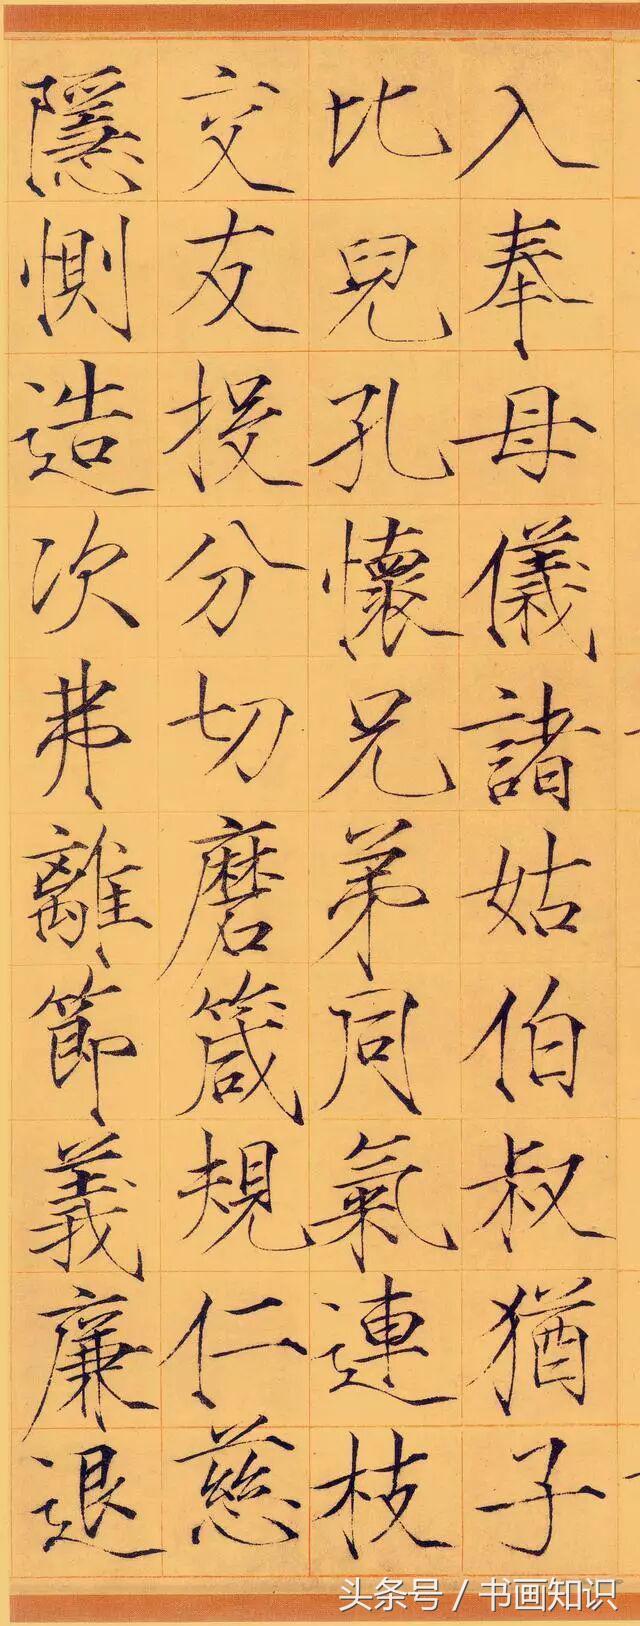 入奉母儀諸姑伯叔猶子
比兒孔懷兄弟同氣連枝
交友投分切磨箴規仁慈
隱惻造次弗離節義廉退
头条号 / 书画知识